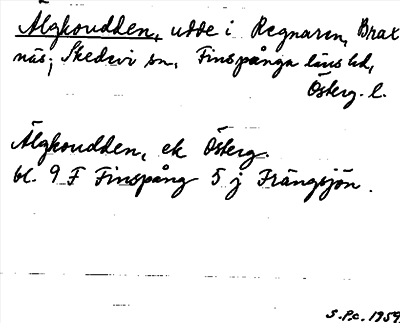 Älgkoudden, udde i Regnaren, Brax
näs, Skedevi sn, Finspånga läns hd,
Österg. l.
Älgkoudden, ek Österg.
bl. 9 F Finspång 5 j Frängsjön.
S.P.C. 1959